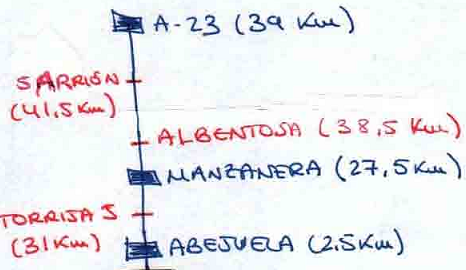 A-23 (39 Km)
SARRIÓN
(41,5 Km)
ALBENTOSA (38,5 Km)
MANZANERA (27,5 Km)
TORRIJAS
(31 Km)
ABEJUELA (2,5 Km)